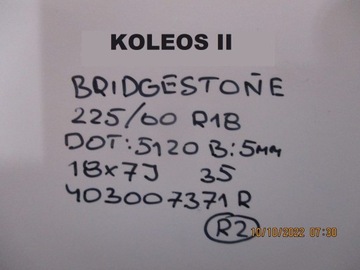 KOLEOS II
BRIDGESTONE
225/60 R18
DOT:5120 B:5mm
18x7J 35
403007371R
R2 10/10/2022 07:30